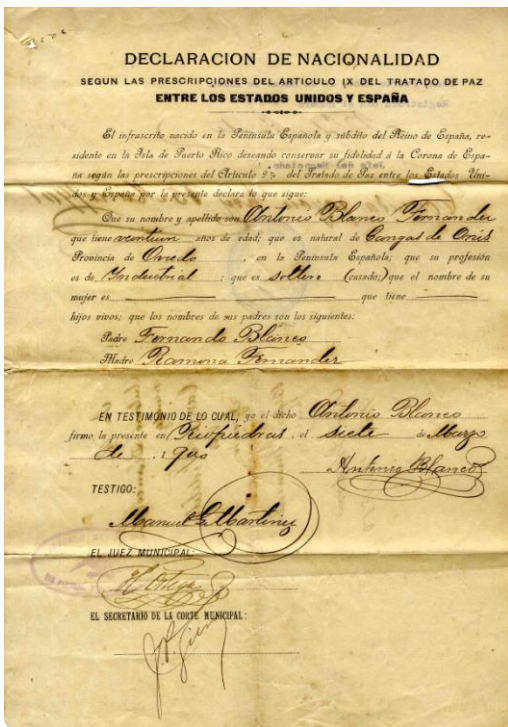 DECLARACION DE NACIONALIDAD
SEGUN LAS PRESCRIPCIONES DEL ARTICULO IX DEL TRATADO DE PAZ
ENTRE LOS ESTADOS UNIDOS Y ESPAÑA
El infrascrito nacido en la Península Española y súbdito del Reino de España, re-
sidente en la Isla de Puerto Rico deseando conservar su fidelidad á la Corona de Espa-
na según las prescripciones del Artículo 9º del Tratado de Paz entre los Estados Uni-
dos y España por la presente declara lo que sigue:
Que su nombre y apellido son Antonio Blanco Fernander
que tiene veintiun años de edad; que es natural de Cangas de Onis
Provincia de Oviedo, en la Península Española; que su profesión
es de Industrial; que es soltero (casado) que el nombre de su
mujer es que tiene
hijos vivos; que los nombres de sus padres son los siguientes:
Padre Fernando Blanco
Madre Ramona Fernander
EN TESTIMONIO DE LO CUAL, yo el dicho Antonio Blanco
firmo la presente en Riopiedras el siete de Marzo
de 1900
Antonio Blanco
TESTIGO:
Manuel G. Martinez
EL JUEZ MUNICIPAL:
EL SECRETARIO DE LA CORTE MUNICIPAL: